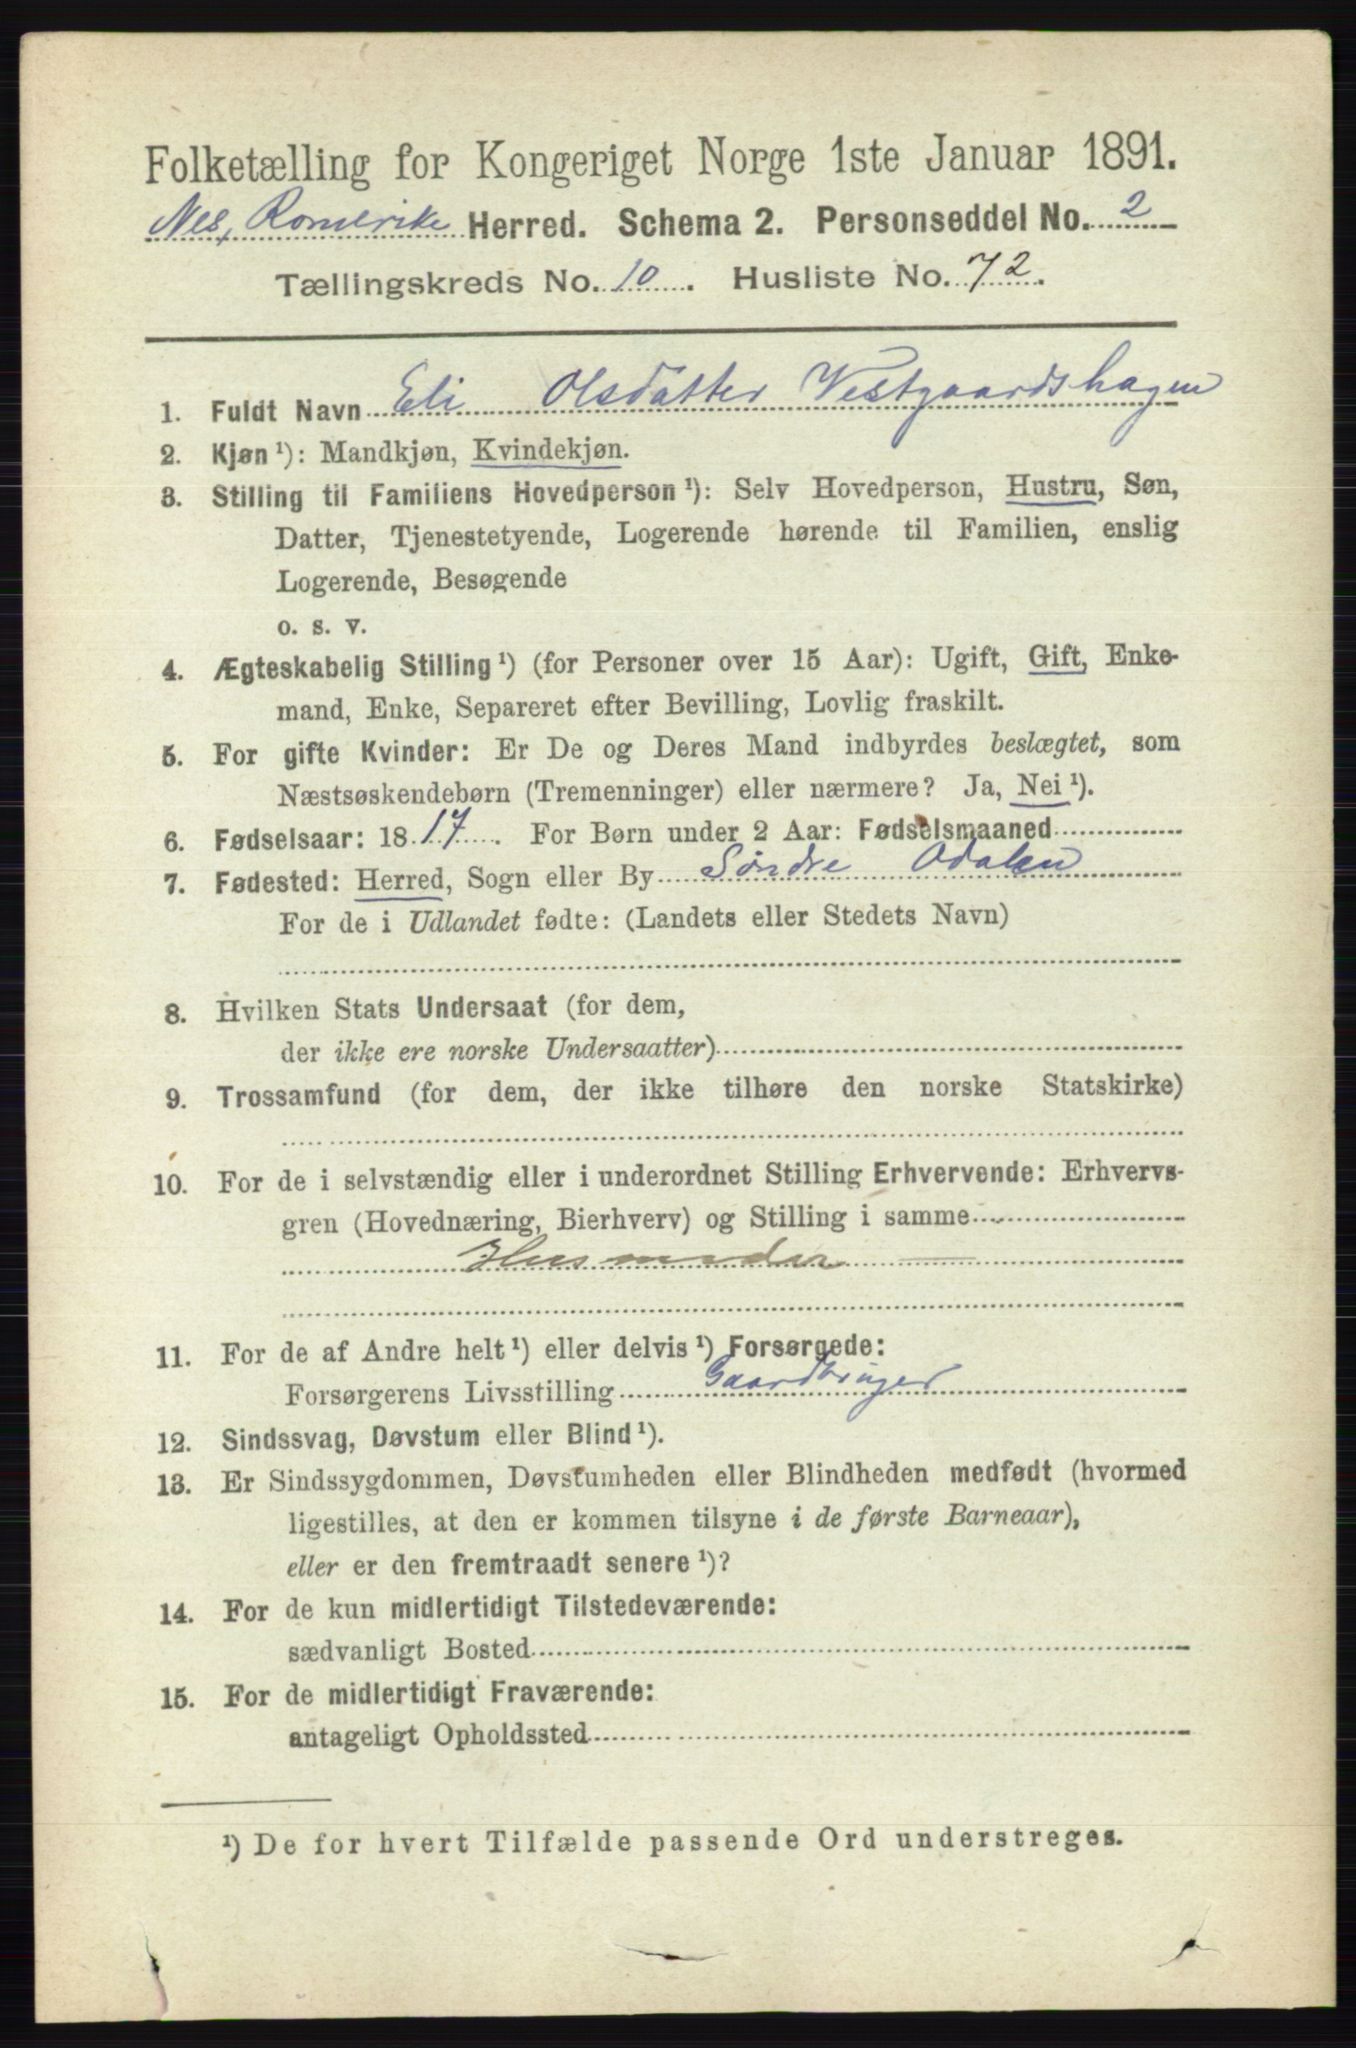 Folketælling for Kongeriget Norge 1ste Januar 1891.
Nes, Romerike Herred. Schema 2. Personseddel No. 2
Tællingskreds No. 10. Husliste No. 72.
1. Fuldt Navn Eli Olsdatter Vestgaardshagen
2. Kjøn ¹): Mandkjøn, Kvindekjøn.
3. Stilling til Familiens Hovedperson ¹): Selv Hovedperson, Hustru, Søn,
Datter, Tjenestetyende, Logerende hørende til Familien, enslig
Logerende, Besøgende
o. s. v.
4. Ægteskabelig Stilling ¹) (for Personer over 15 Aar): Ugift, Gift, Enke-
mand, Enke, Separeret efter Bevilling, Lovlig fraskilt.
5. For gifte Kvinder: Er De og Deres Mand indbyrdes beslægtet, som
Næstsøskendebørn (Tremenninger) eller nærmere? Ja, Nei ¹).
6. Fødselsaar: 1817. For Børn under 2 Aar: Fødselsmaaned
7. Fødested: Herred, Sogn eller By Söndre Odalen
For de i Udlandet fødte: (Landets eller Stedets Navn)
8. Hvilken Stats Undersaat (for dem,
der ikke ere norske Undersaatter)
9. Trossamfund (for dem, der ikke tilhøre den norske Statskirke)
10. For de i selvstændig eller i underordnet Stilling Erhvervende: Erhvervs-
gren (Hovednæring, Bierhverv) og Stilling i samme
Husmoder
11. For de af Andre helt ¹) eller delvis ¹) Forsørgede:
Forsørgerens Livsstilling Gaardbruger
12. Sindssvag, Døvstum eller Blind ¹).
13. Er Sindssygdommen, Døvstumheden eller Blindheden medfødt (hvormed
ligestilles, at den er kommen tilsyne i de første Barneaar),
eller er den fremtraadt senere ¹)?
14. For de kun midlertidigt Tilstedeværende:
sædvanligt Bosted
15. For de midlertidigt Fraværende:
antageligt Opholdssted
¹) De for hvert Tilfælde passende Ord understreges.